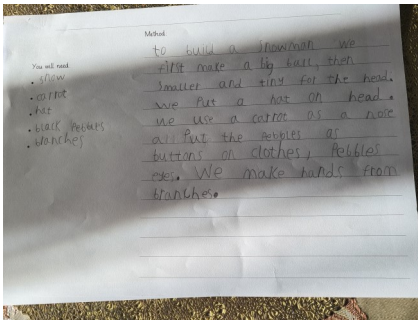 Method
You will need
• snow
• carrot
• hat
• black Pebbles
• branches
to build a snowman we
first make a big ball, then
smaller and tiny for the head.
We Put a hat on head.
we use a carrot as a nose
Put the Pebbles as
buttons on clothes, Pebbles
eyes. We make hands from
branches.